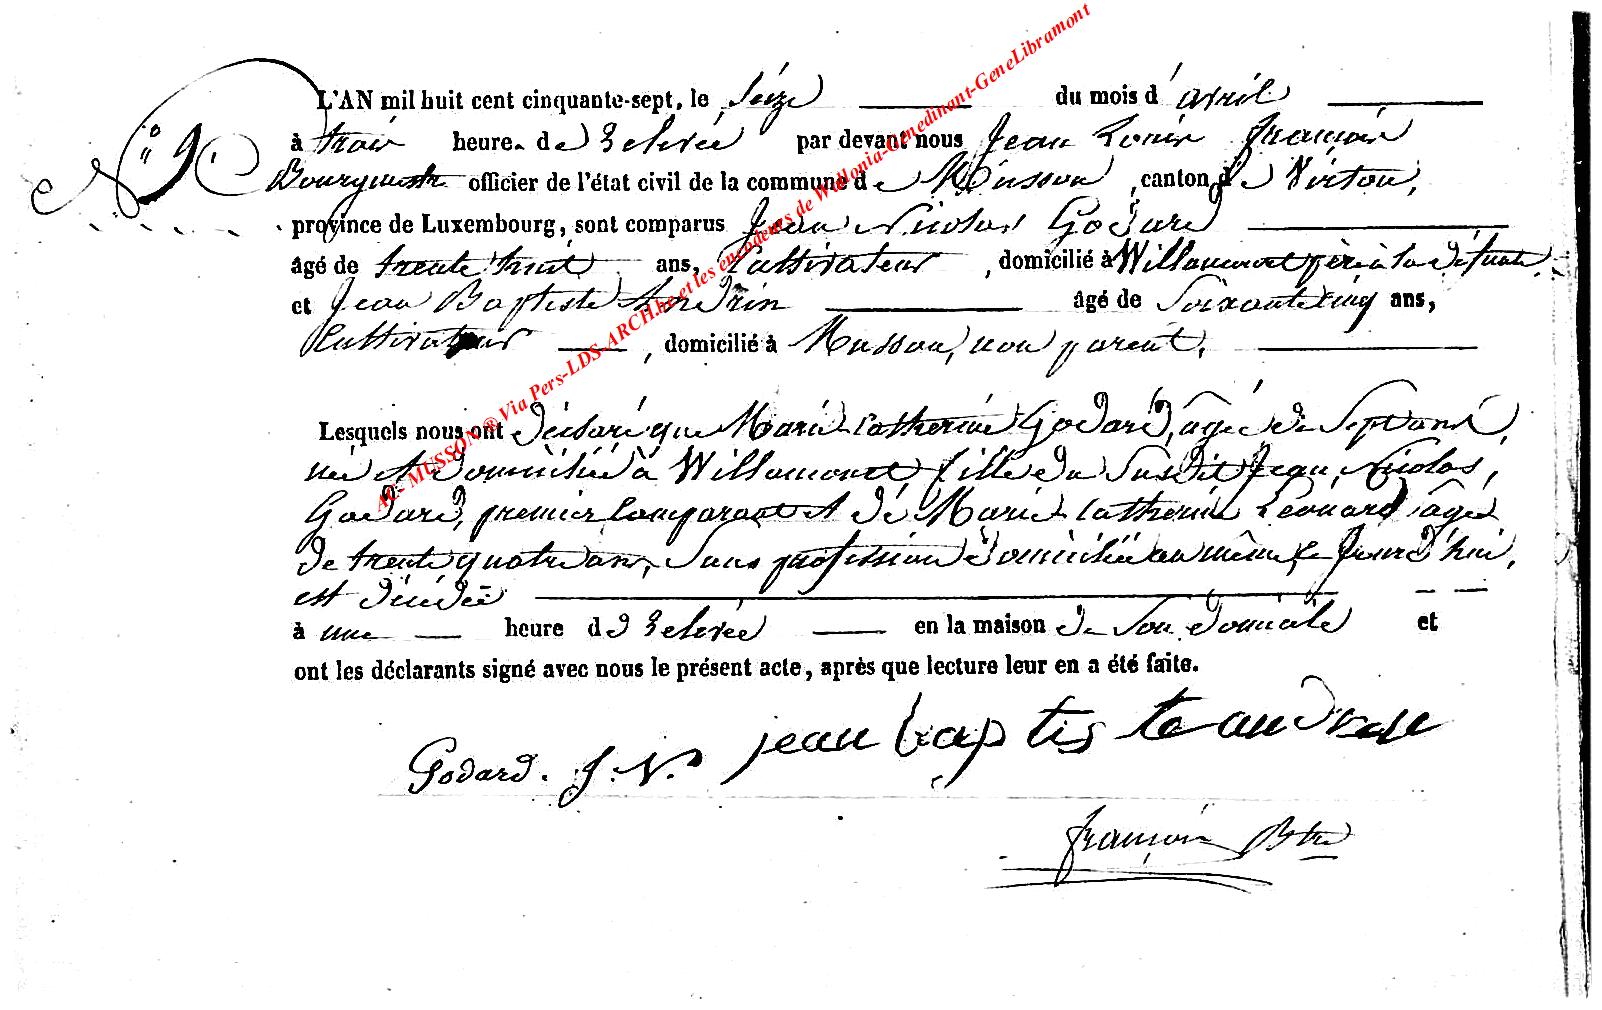 N° 9.
L'AN mil huit cent cinquante-sept, le seize du mois d'avril
à trois heure. de relevée par devant nous Jean Louis François
Bourgmestre officier de l'état civil de la commune de Musson, canton de Virton,
province de Luxembourg, sont comparus Jean Nicolas Godard
âgé de trente huit ans, Cultivateur, domicilié à Willancourt père à la défunte,
et Jean Baptiste Andrin âgé de Soixante cinq ans,
Cultivateur, domicilié à Musson, non parent.
Lesquels nous ont déclaré que Marie Catherine Godard, âgée de Sept ans,
née et domiciliée à Willancourt fille du Susdit Jean Nicolas
Godard, premier Comparant et de Marie Catherine Léonard âgée
de trente quatre ans, Sans profession domiciliée au même, Jourd'hui,
est décédée
à une heure de relevée en la maison de Son domicile et
ont les déclarants signé avec nous le présent acte, après que lecture leur en a été faite.
Godard. J. N. jean baptiste
François Btre
AC- MUSSON ® Via Pers-LDS-ARCH.be et les encodeurs de Wallonia-Genedinant-GeneLibramont